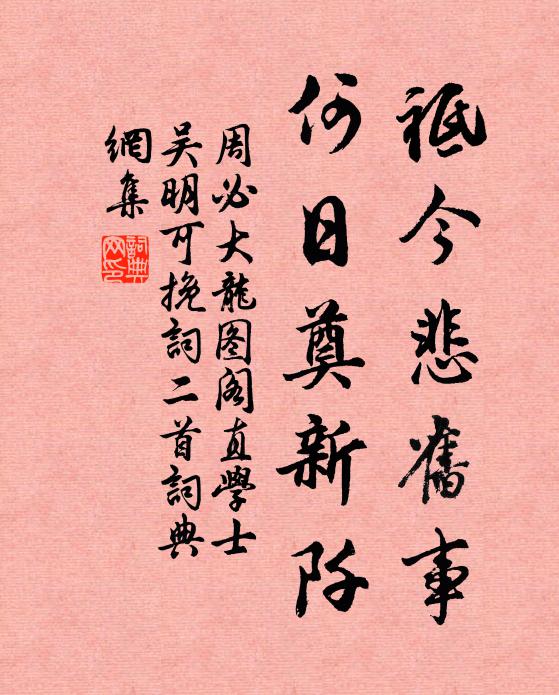 祗今悲舊事
何日奠新阡
周必大龍图阁直學士
吴明可挽詞二首詞典
網集
詞典网印